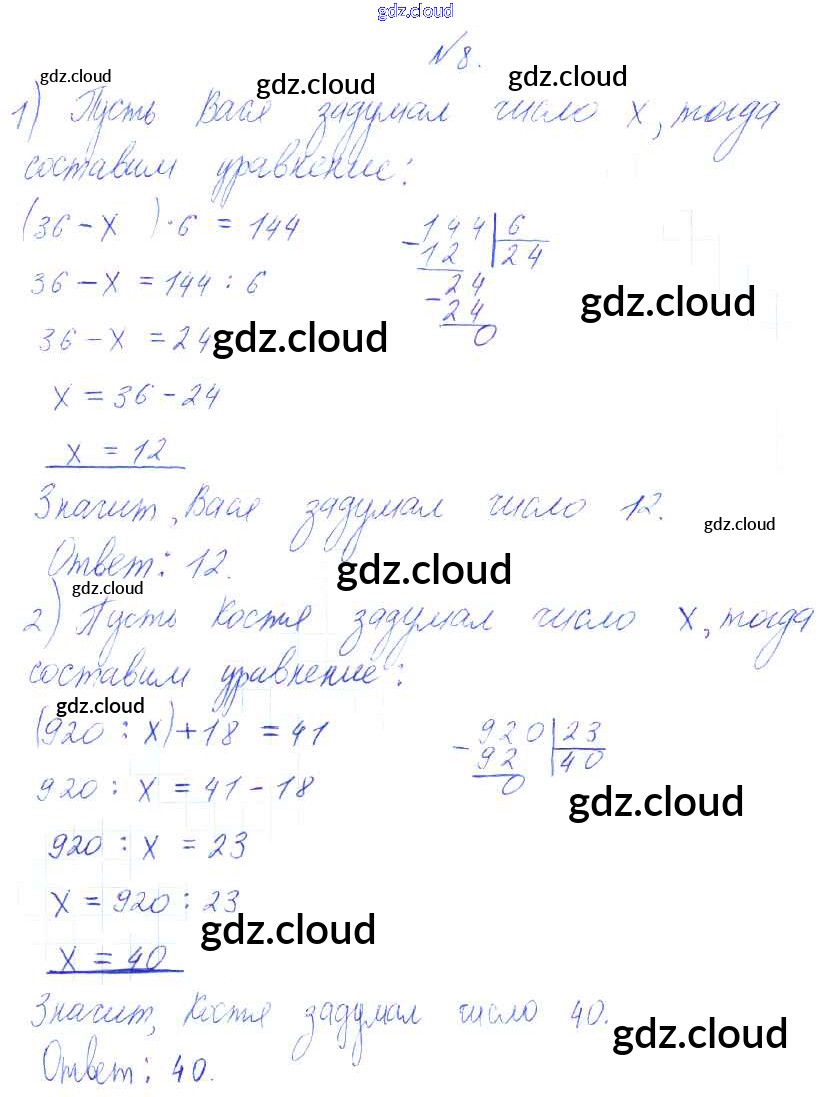 gdz.cloud
№8.
gdz.cloud gdz.cloud gdz.cloud
1) Пусть Вася задумал число x, тогда
составим уравнение:
(36 - x ) · 6 = 144
36 - x = 144 : 6
36 - x = 24
x = 36 - 24
x = 12
144 | 6
- 12 | 24
24
- 24
0
gdz.cloud
gdz.cloud
Значит, Вася задумал число 12.
gdz.cloud
Ответ: 12.
gdz.cloud
gdz.cloud
2) Пусть Костя задумал число x, тогда
составим уравнение:
gdz.cloud
(920 : x) + 18 = 41
920 : x = 41 - 18
920 : x = 23
x = 920 : 23
x = 40
- 920 | 23
92 | 40
0
gdz.cloud
gdz.cloud
Значит, Костя задумал число 40.
gdz.cloud
Ответ: 40.